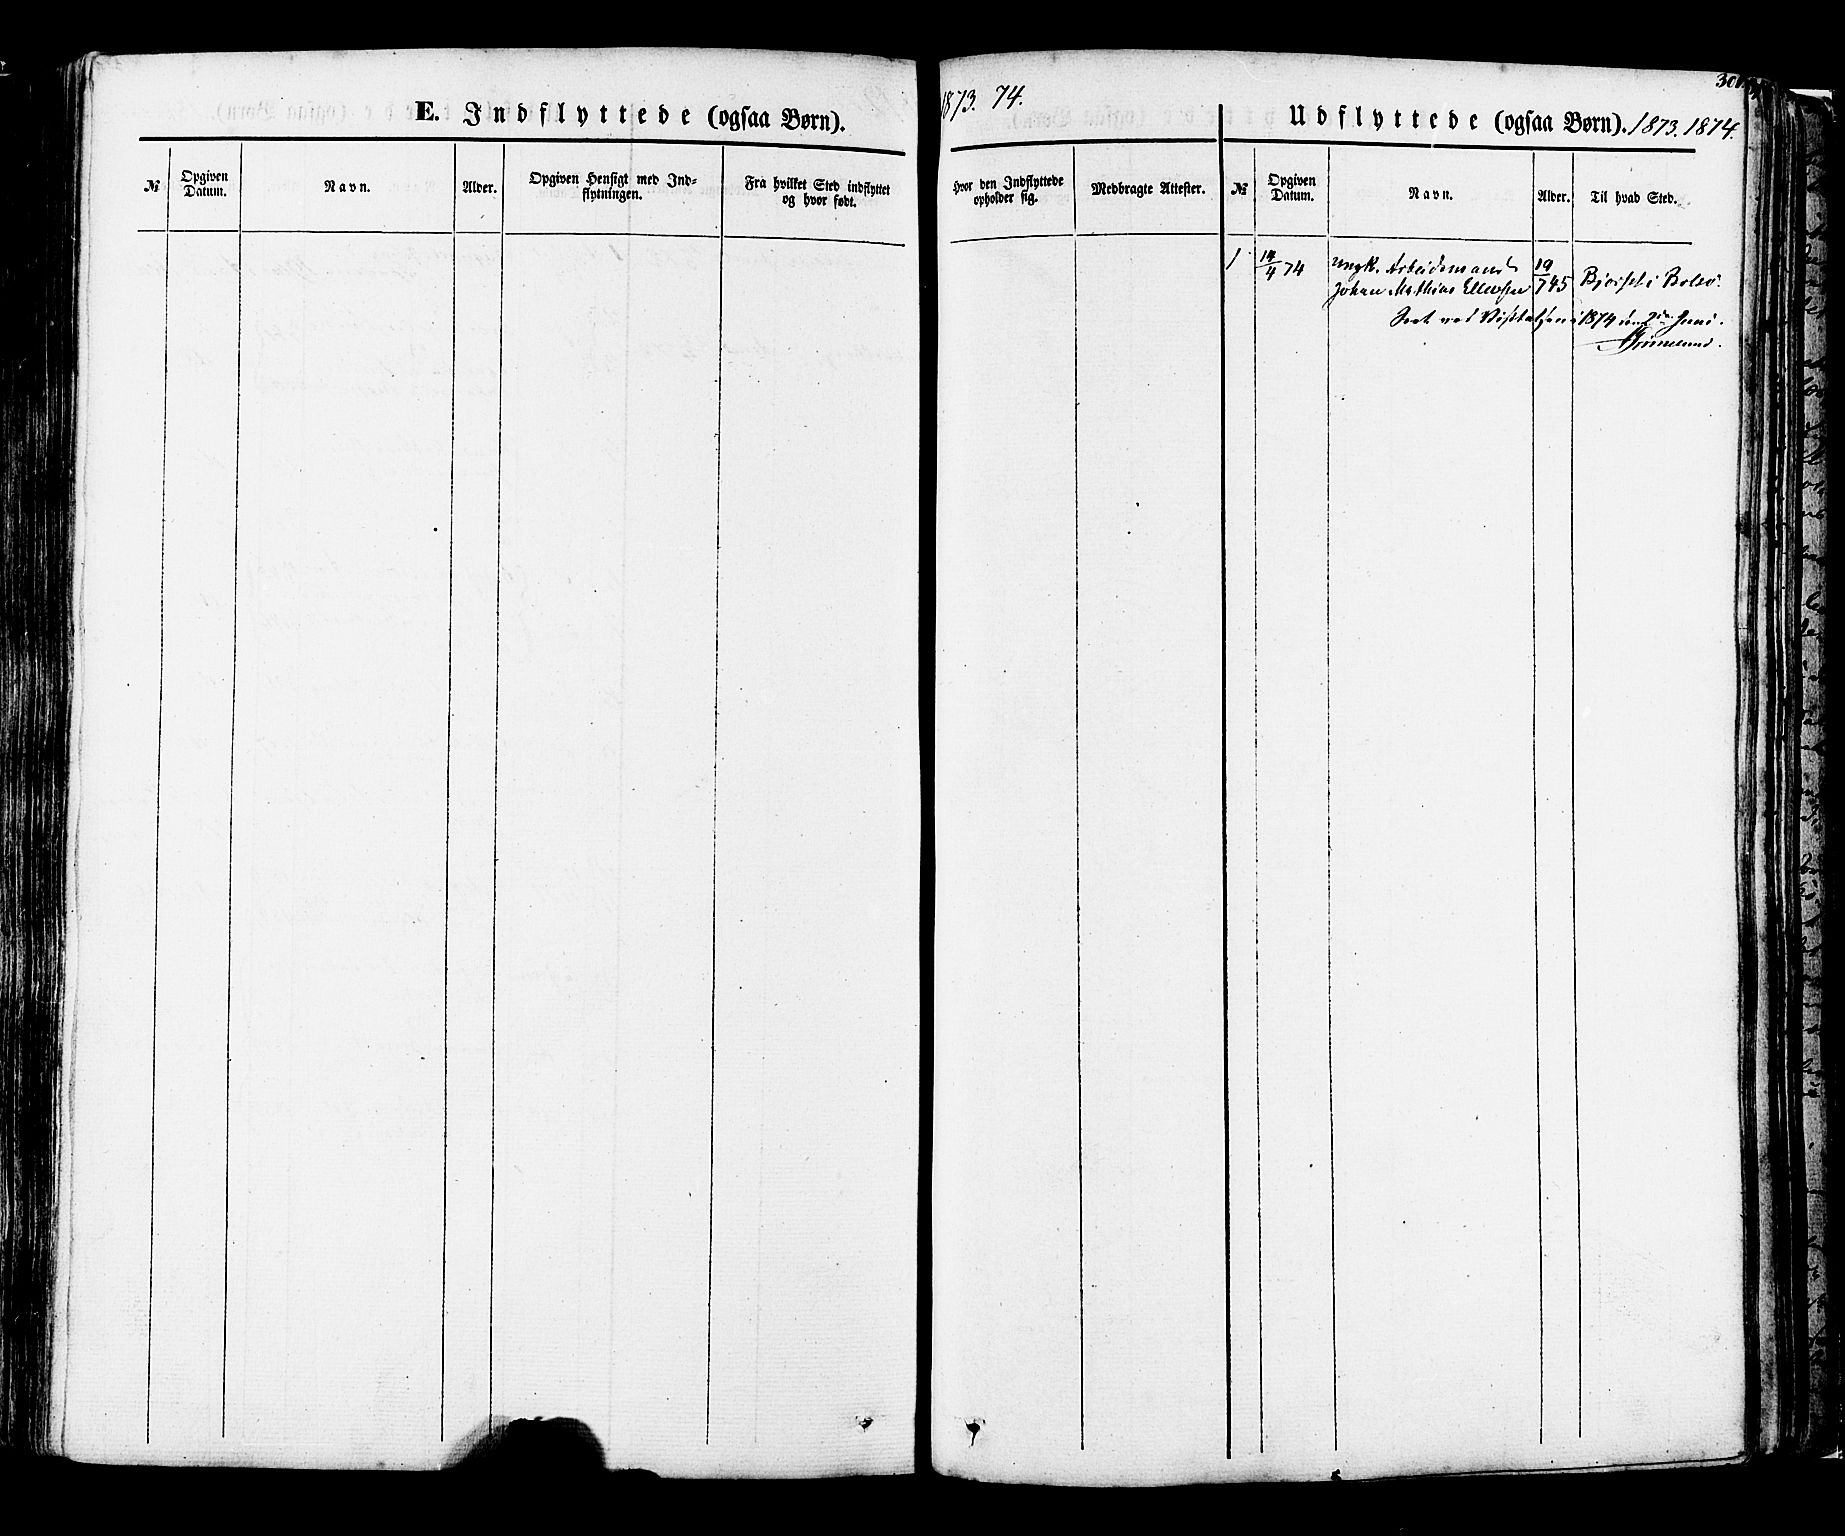 E. Indflyttede (ogsaa Børn).
1873. 74.
№
Opgiven Datum.
Navn.
Alder.
Opgiven Hensigt med Ind-
flytningen.
Fra hvilket Sted indflyttet
og hvor født.
Hvor den Indflyttede
opholder sig.
Medbragte Attester.
Udflyttede (ogsaa Børn). 1873. 1874.
№
Opgiven
Datum.
Navn.
Alder.
Til hvad Sted.
1 14/4 74 Ungk. Arbeidsmand 19/7 45 Bjørset i Bolsø.
Johan Mathias Ellevsen
Seet ved Visitatsen 1874 den Juni.
Grimelund.